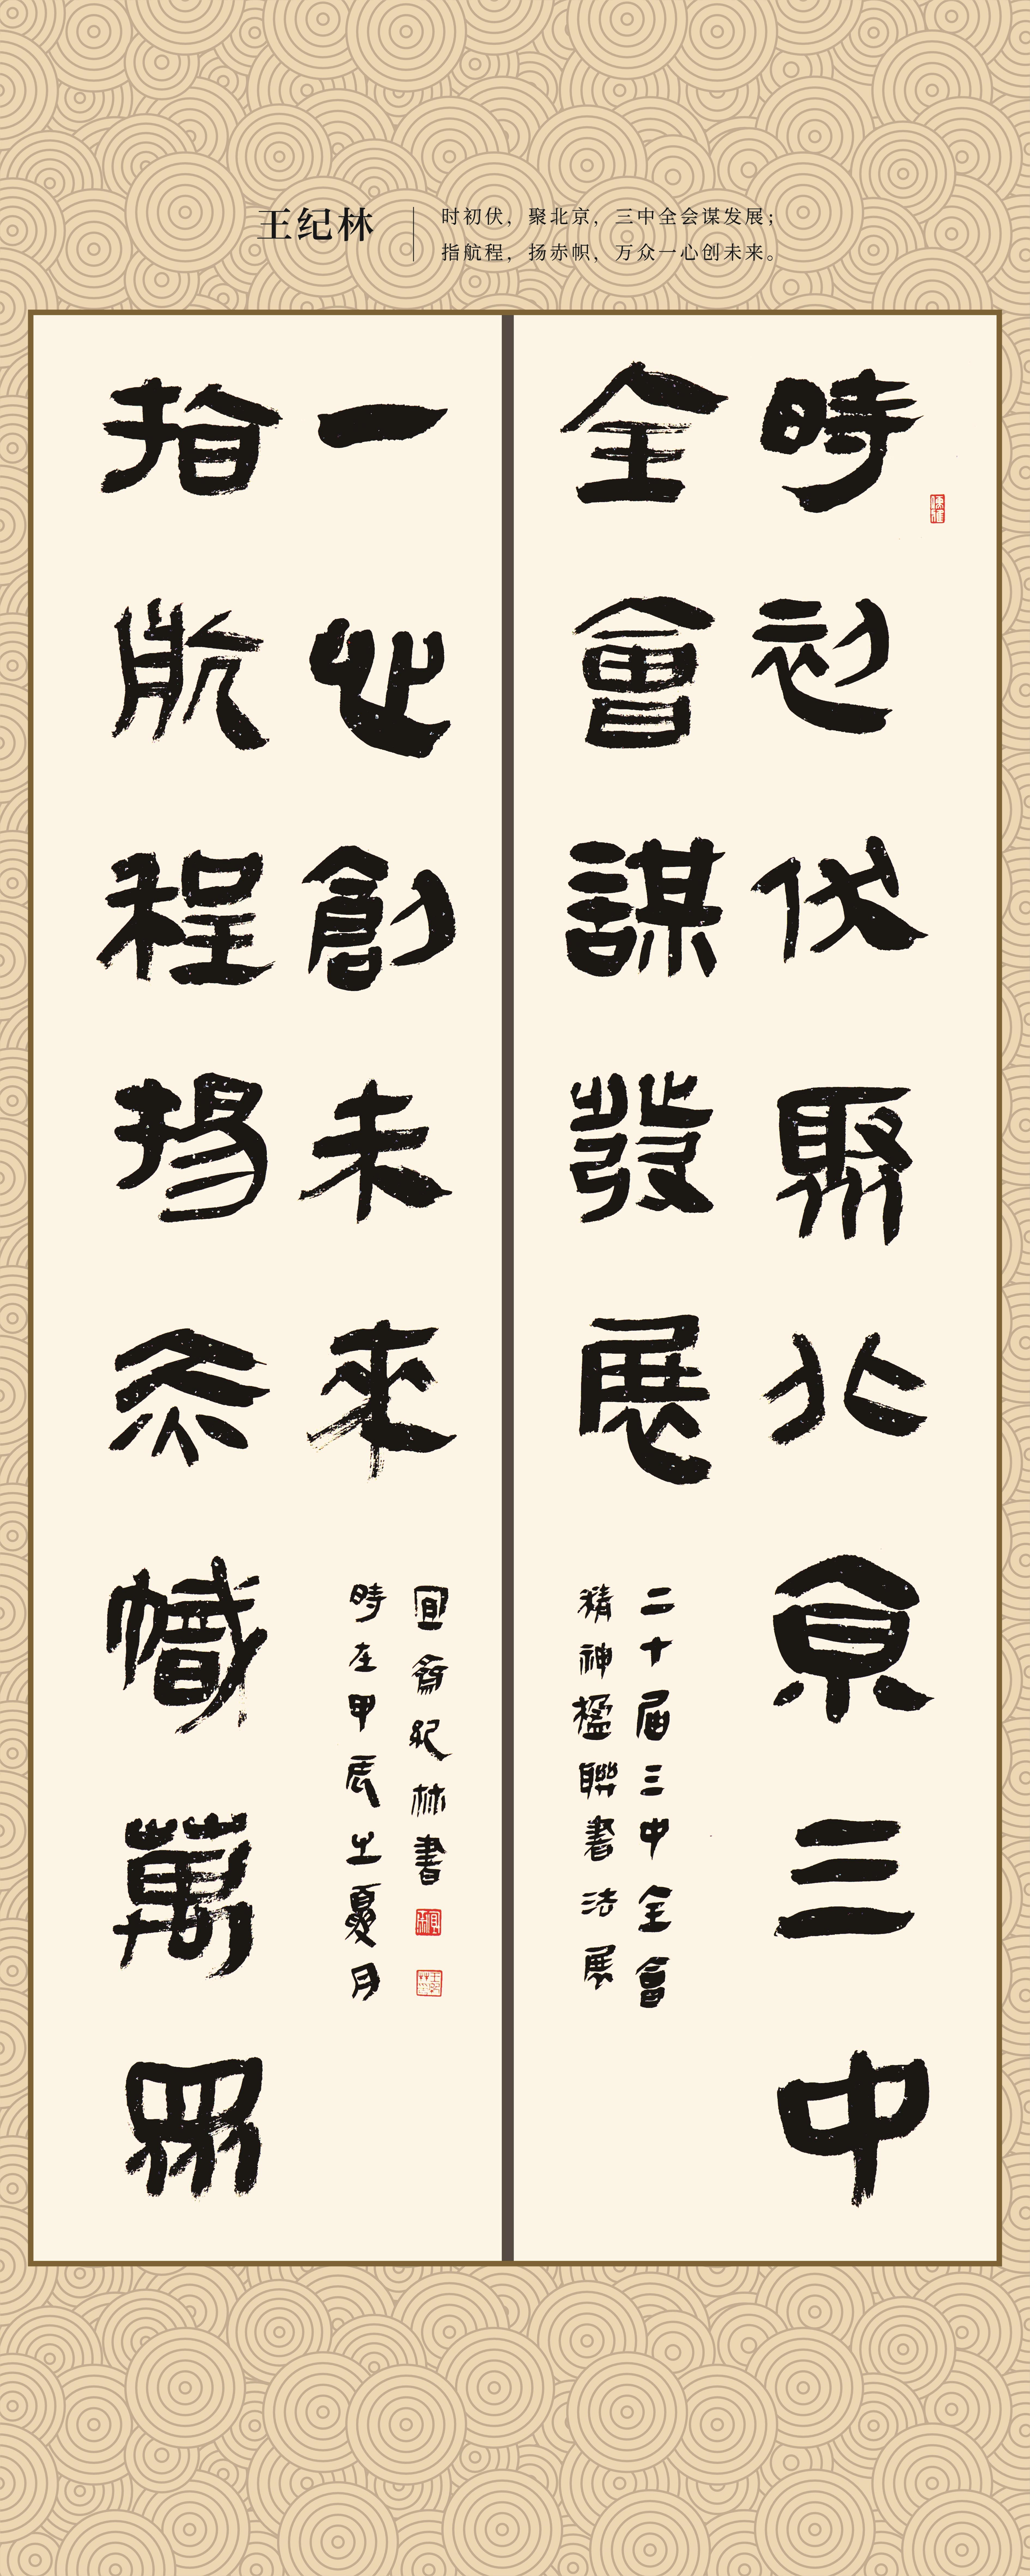 王纪林
时初伏，聚北京，三中全会谋发展；
指航程，扬赤帜，万众一心创未来。
時初伏聚北京三中
全會謀發展
二十届三中全會
精神楹聯書法展
指航程揚赤幟萬眾
一心創未來
時在甲辰之夏月
紀林書